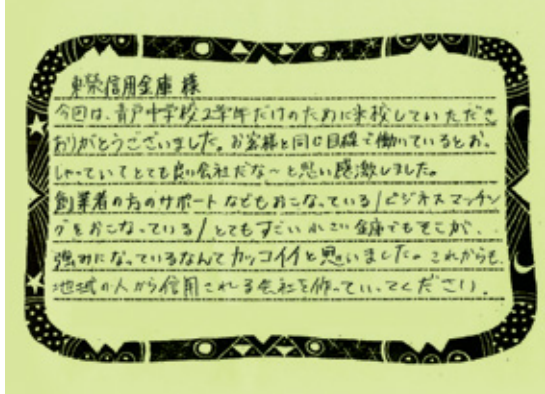 東栄信用金庫 様
今回は、青戸中学校2学年だけのために来校していただき
ありがとうございました。お客様と同じ目線で働いているとおっ
しゃっていてとても良い会社だな〜と思い感激しました。
創業者の方のサポートなどもおこなっている/ビジネスマッチン
グをおこなっている/とてもすごい 小さい金庫でもそこが、
強みになっているなんてカッコイイと思いました。これからも、
地域の人から信用される会社を作っていってください。